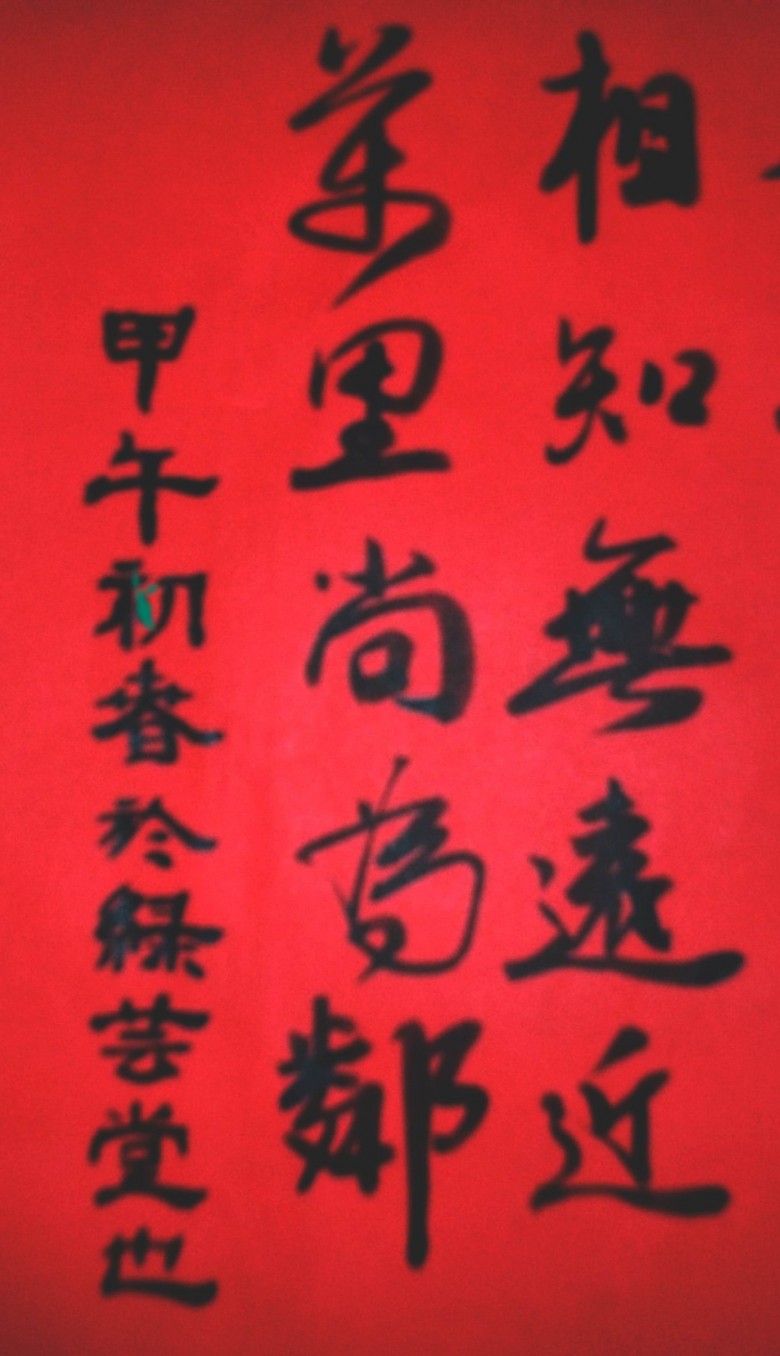 相知無遠近
萬里尚為鄰
甲午初春於綠芸堂也